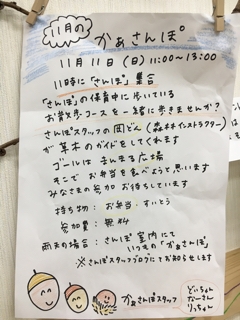 11月の
かぁさんぽ
11月11日(日) 11:00〜13:00
11時に「さんぽ」集合
「さんぽ」の保育中に歩いている
お散歩コースを一緒に歩きませんか?
さんぽスタッフの岡どん(森林インストラクター)
が草木のガイドをしてくれます
ゴールは きんまる広場
そこで お弁当を食べようと思います
みなさまの参加 お待ちしています
持ち物: お弁当・すいとう
参加費: 無料
雨天の場合: さんぽ室内にて
いつもの「かぁさんぽ」
※さんぽスタッフブログにてお知らせします
かぁさんぽスタッフ
どいちゃん
なーさん
りっちゃん